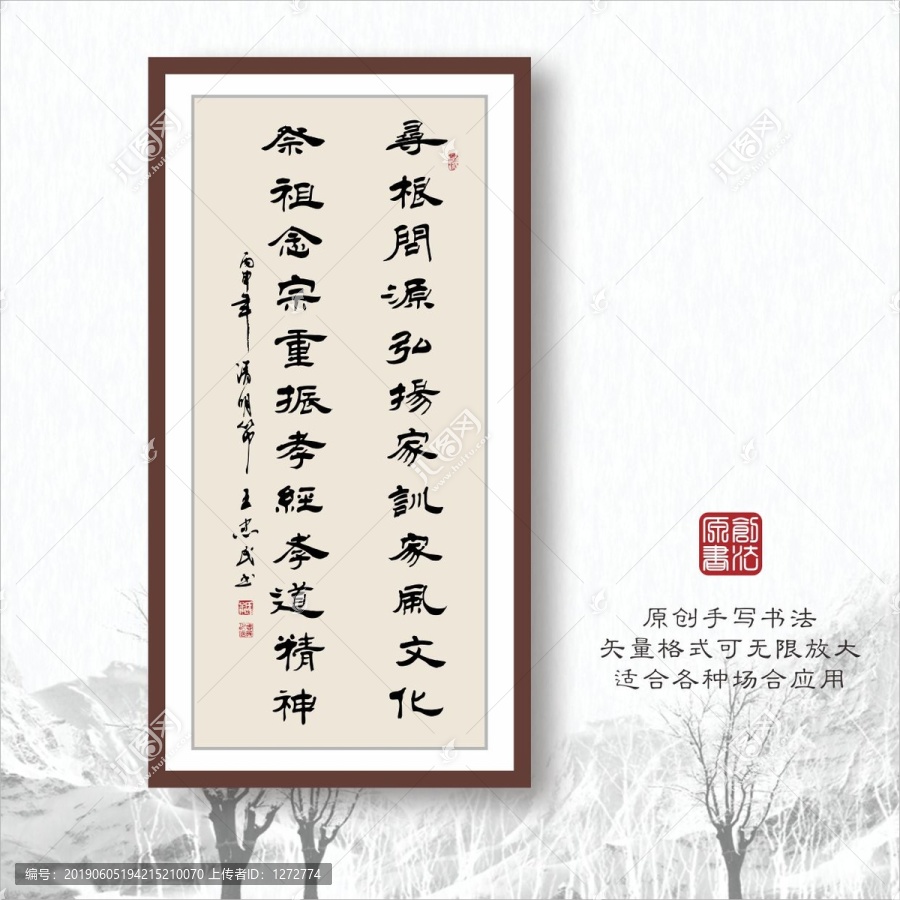 尋根問源弘揚家訓家風文化
祭祖念宗重振孝經孝道精神
丙申年清明節王忠民书
原創書法
原创手写书法
矢量格式可无限放大
适合各种场合应用
汇图网
www.huitu.com
编号：20190605194215210070 上传者ID：1272774